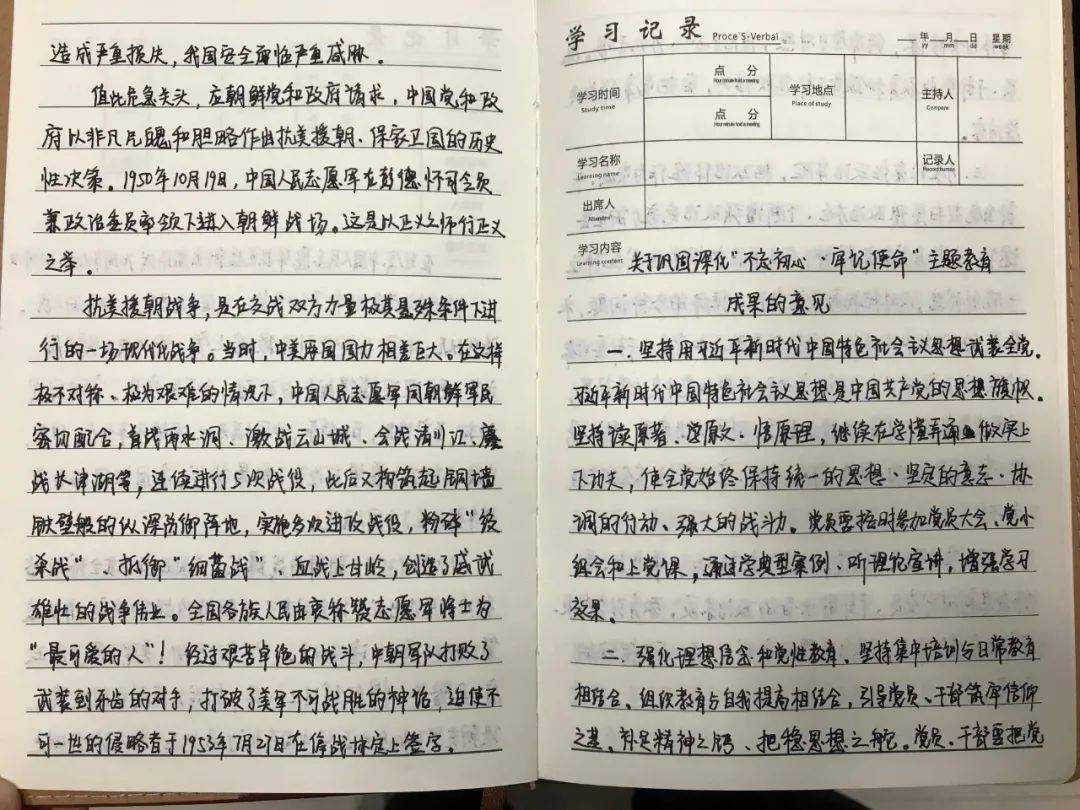 造成严重损失，我国安全面临严重威胁。
值此危急关头，应朝鲜党和政府请求，中国党和政
府以非凡气魄和胆略作出抗美援朝、保家卫国的历史
性决策。1950年10月19日，中国人民志愿军在彭德怀司令员
兼政治委员率领下进入朝鲜战场。这是以正义之师行正义
之举。
抗美援朝战争，是在交战双方力量极其悬殊条件下进
行的一场现代化战争。当时，中美两国国力相差巨大。在这样
极不对称、极为艰难的情况下，中国人民志愿军同朝鲜军民
密切配合，首战两水洞、激战云山城、会战清川江、鏖
战长津湖等，连续进行5次战役，此后又构筑起铜墙
铁壁般的纵深防御阵地，实施多次进攻战役，粉碎“绞
杀战”、抵御“细菌战”、血战上甘岭，创造了威武
雄壮的战争伟业。全国各族人民由衷称赞志愿军将士为
“最可爱的人”！经过艰苦卓绝的战斗，中朝军队打败了
武装到牙齿的对手，打破了美军不可战胜的神话，迫使不
可一世的侵略者于1953年7月27日在停战协定上签字。
学习记录 Proce`S-Verbal
年 月 日 星期
yy mm dd week
学习时间 点 分 学习地点 主持人
Study time Hour minute hold a meeting Place of study Compare
点 分
Hour minute hold a meeting
学习名称 记录人
Learning name Record human
出席人
Attended
学习内容
Learning content
关于巩固深化“不忘初心·牢记使命”主题教育
成果的意见
一、坚持用习近平新时代中国特色社会主义思想武装全党。
习近平新时代中国特色社会主义思想是中国共产党的思想旗帜。
坚持读原著、学原文、悟原理，继续在学懂弄通做实上
下功夫，使全党始终保持统一的思想、坚定的意志、协
调的行动、强大的战斗力。党员要按时参加党员大会、党小
组会和上党课，通过学典型案例、听理论宣讲，增强学习
效果。
二、强化理想信念和党性教育。坚持集中培训与日常教育
相结合、组织教育与自我提高相结合，引导党员、干部筑牢信仰
之基、补足精神之钙、把稳思想之舵。党员、干部要把党